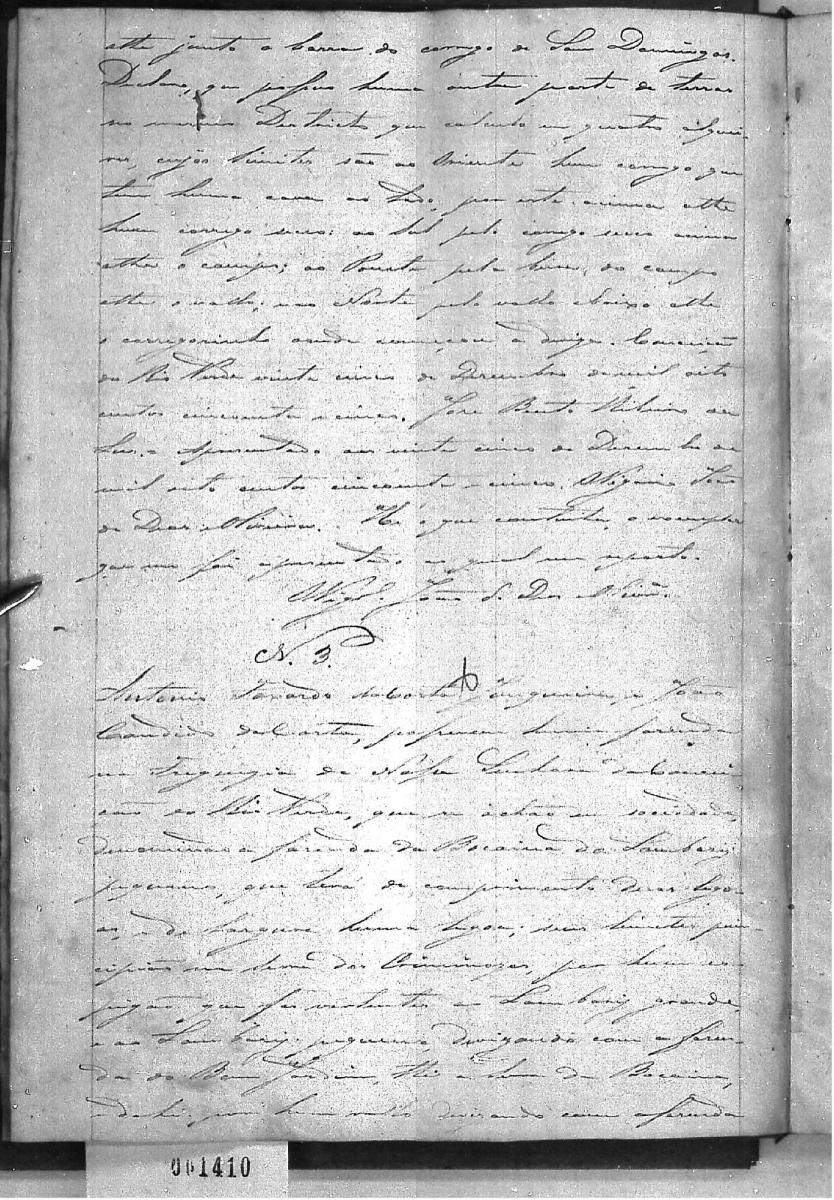 athe junto a barra do corrego de San Domingos.
Declaro, que possuo huma outra parte de terras
no mesmo Destricto, que calculo em quatro alquei-
res, cujos limites são ao Oriente hum corrego, que
tem huma cava ao lado, por este acima athe
hum corrego seco: ao Sul pelo corrego seco acima
athe o campo; ao Poente pela do campo
athe o vallo, e ao Norte pelo vallo abaixo athe
o corregozinho onde começou a diviza. Conceição
do Rio Verde vinte cinco de Dezembro de mil oito
centos cincoenta e cinco. José Bento Ribeiro da
Apresentado aos vinte cinco de Dezembro de
mil oito centos cincoenta e cinco. O Vigario João
de Deos He o que continha o exemplar
que me foi apresentado ao qual me reporto.
O Vigr.º João de Deos
N. 3.
Antonio da Costa Junqueira, e João
Candido da Costa, possuem huma fazenda
na Freguezia de Nossa Senhora da Concei-
ção do Rio Verde, que se achão em sociedade,
denominada fazenda da Bocaina do Lambary
pequeno, que terá de comprimento duas lego-
as, e de largura huma legoa; seus limites prin-
cipião na serra dos Criminozos, por hum es-
pigão, que faz vertentes ao Lambary grande,
e ao Lambary pequeno, divizando com a fazen-
da do Bom Jardim, athe a serra da Bocaina,
dahi por hum vallo divizando com a fazenda
061410